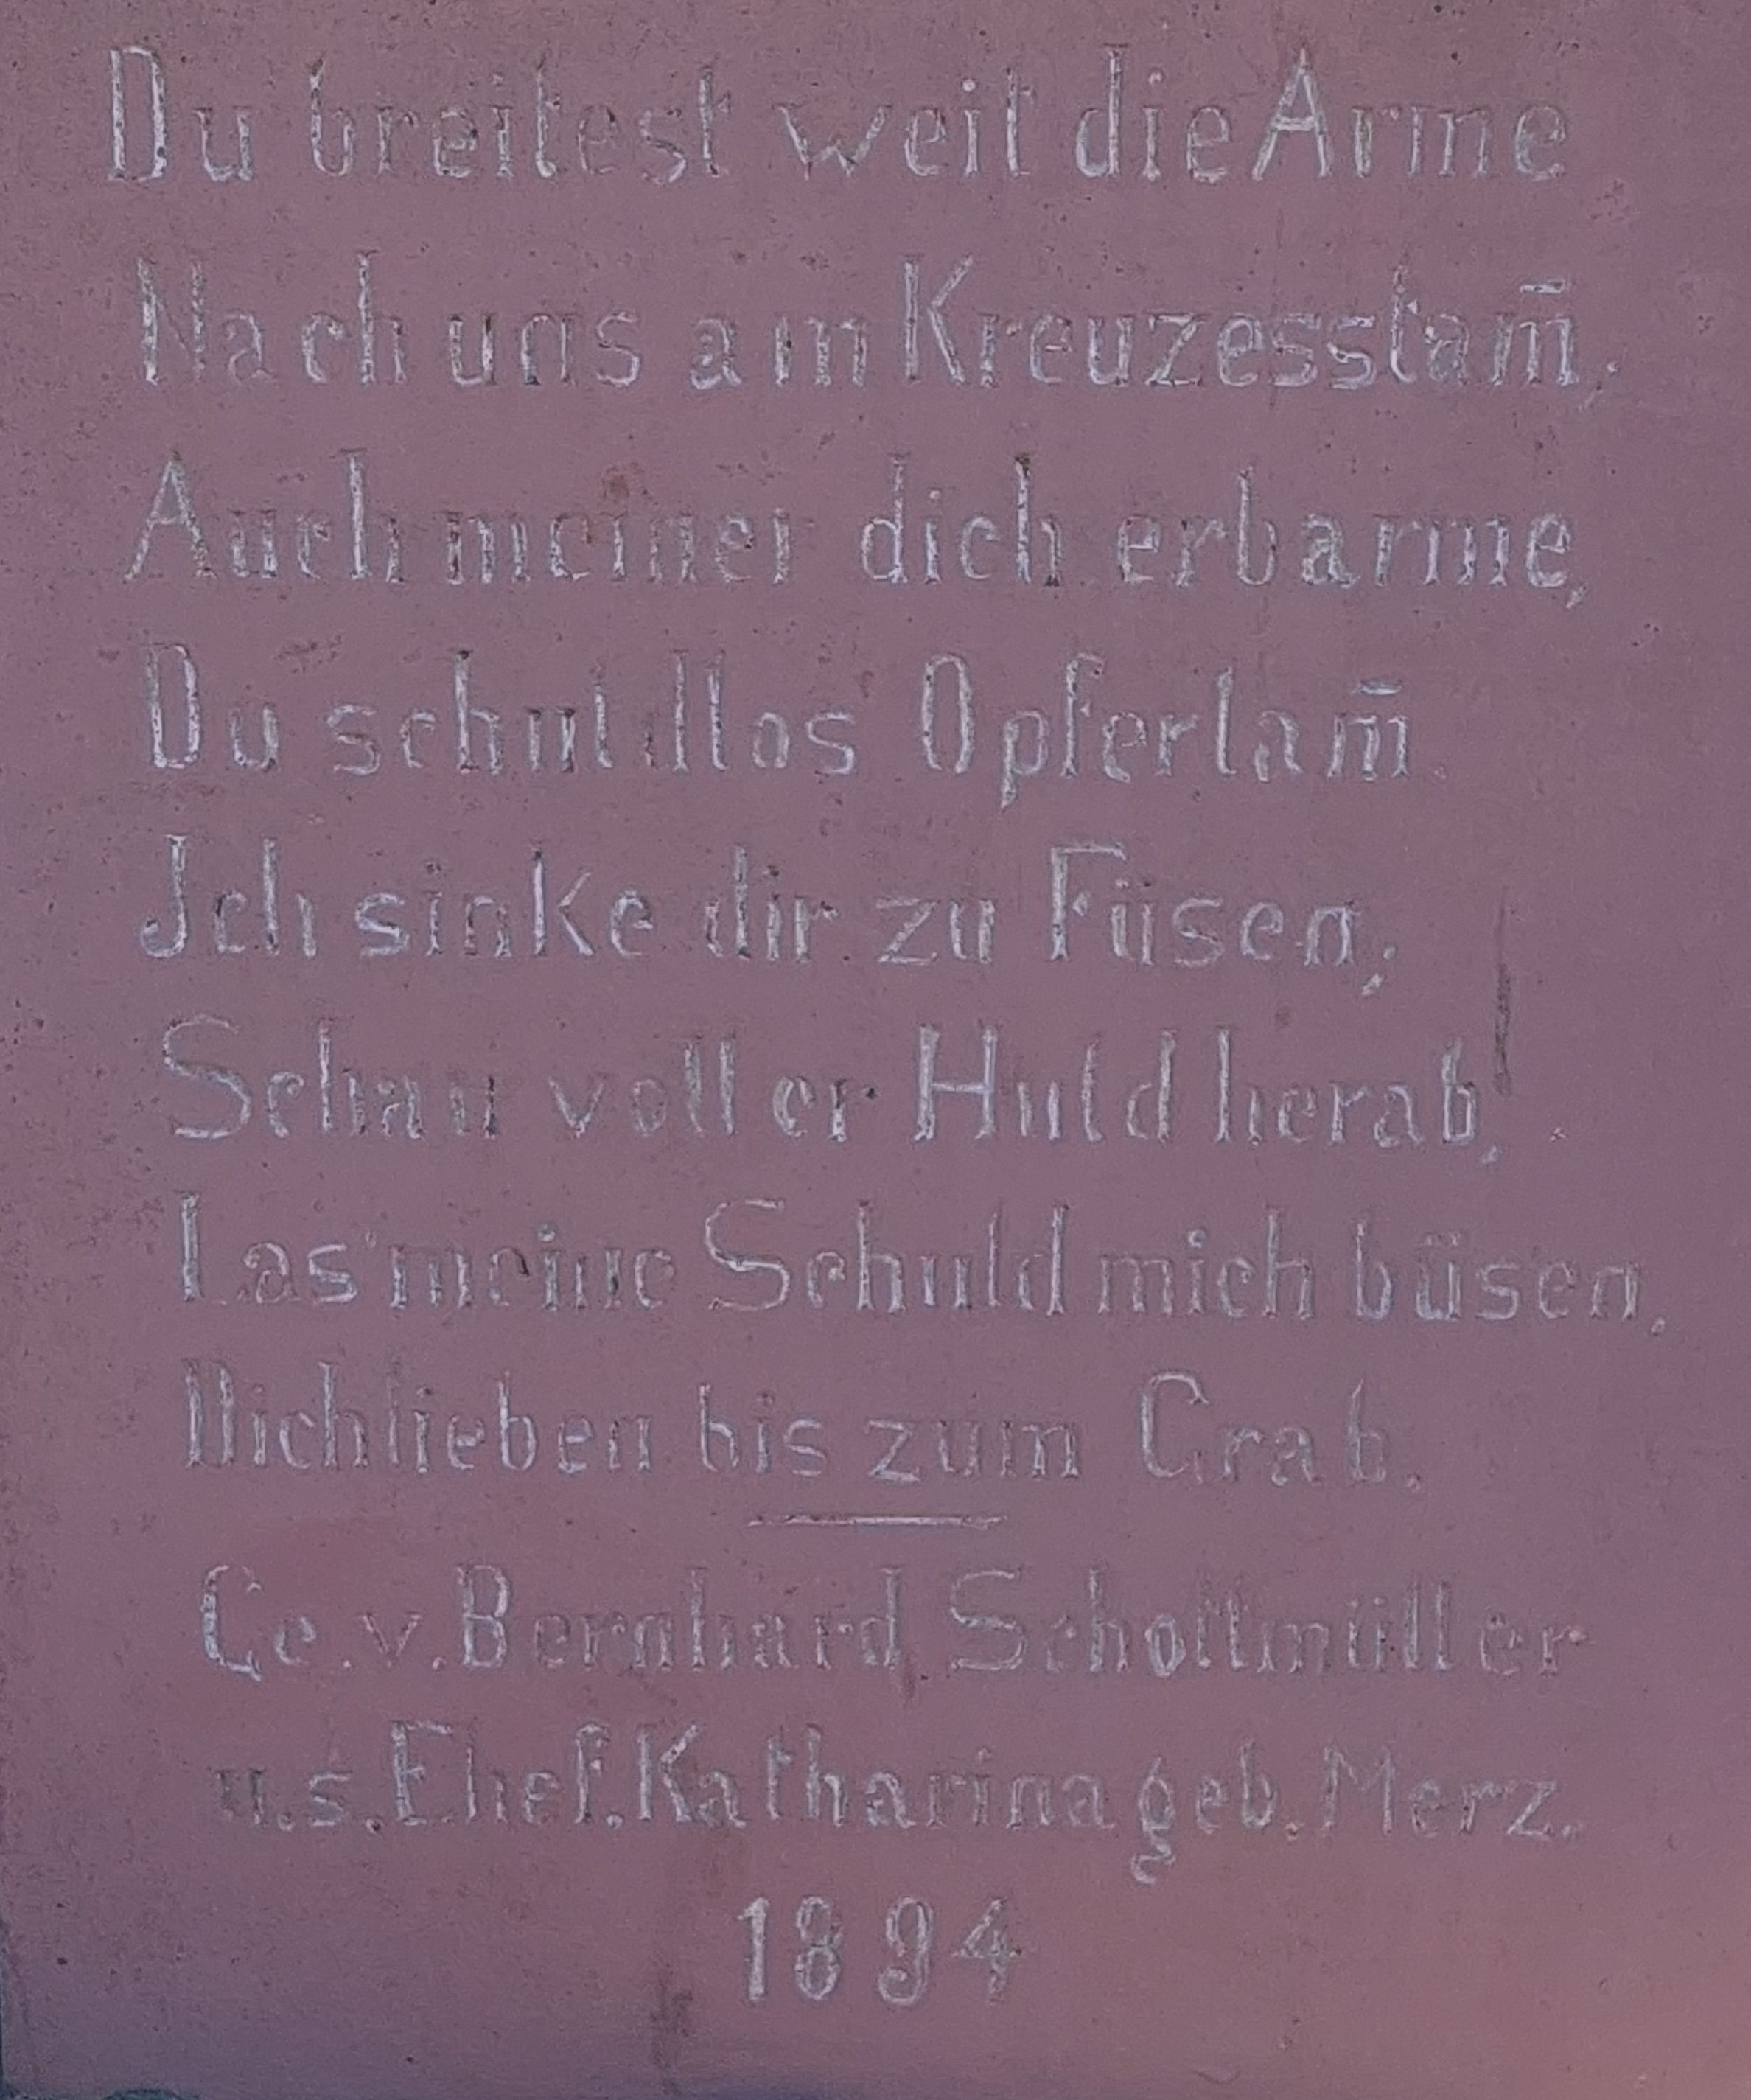 Du breitest weit die Arme
Nach uns am Kreuzesstam̄,
Auch meiner dich erbarme,
Du schuldlos Opferlam̄.
Jch sinke dir zu Füsen,
Schau voller Huld herab,
Las meine Schuld mich büsen,
Dich lieben bis zum Grab.
Ge. v. Bernhard Schottmüller
u. s. Ehef. Katharina geb. Merz.
1894